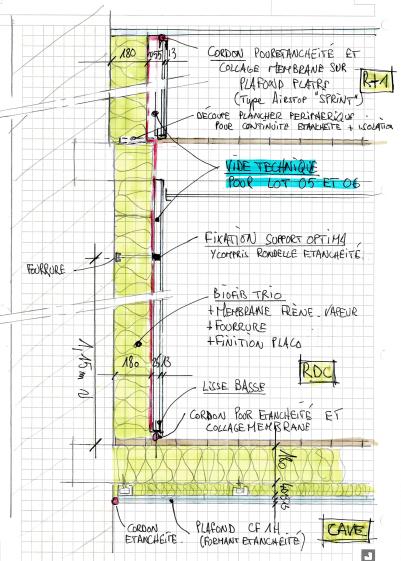 180
55
13
CORDON POUR ETANCHEITÉ ET
COLLAGE MEMBRANE SUR
PLAFOND PLATRE
(Type AIRSTOP "SPRINT")
R+1
DECOUPE PLANCHER PERIPHERIQUE
POUR CONTINUITÉ ETANCHEITE + ISOLATION
VIDE TECHNIQUE
POUR LOT 05 ET 06
FIXATION SUPPORT OPTIMA
Y COMPRIS RONDELLE ETANCHEITÉ
FOURRURE
BIOFIB TRIO
+ MEMBRAINE FREINE-VAPEUR
+ FOURRURE
+ FINITION PLACO
1,15 m
180
25
13
RDC
LISSE BASSE
CORDON POUR ETANCHEITÉ ET
COLLAGE MEMBRANE
180
CORDON
ETANCHEITE
PLAFOND CF 1H
(FORMANT ETANCHEITÉ)
CAVE